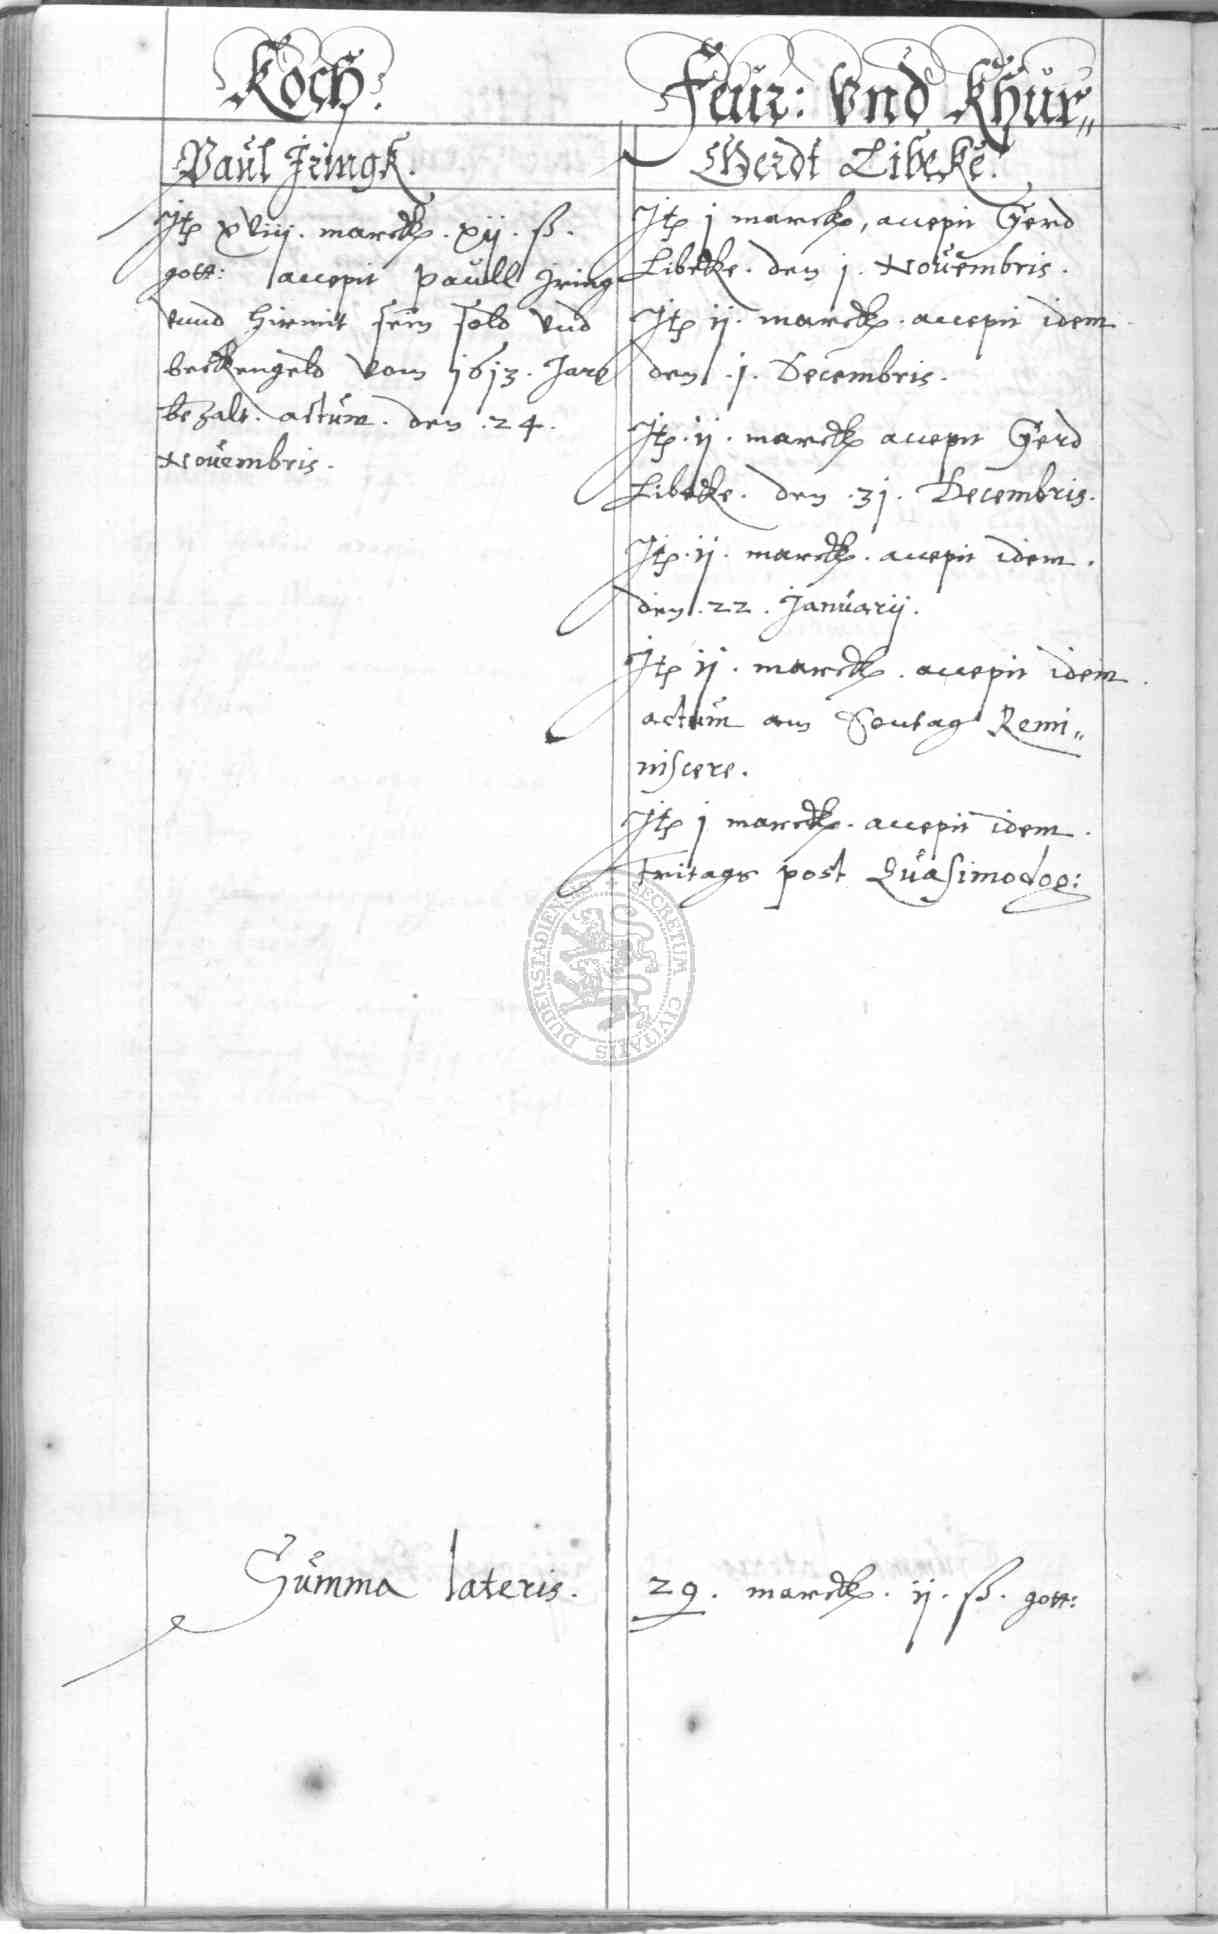 Koch.
Paul Jringk.
Jtp xviij. marck. xij. ß.
gott: accepit Paull Jring
vnnd hirmit sein sold vnd
beckengeld vom 1613. Jare
bezalt. actum. den .24.
Nouembris.
Feur: Vnd Khur„
Gerdt Libeke.
Jtp j marck, accepit Gerd
Libecke. den j. Nouembris.
Jtp ij. marck. accepit idem
den .j. Decembris.
Jtp. ij. marck accepit Gerd
Libecke. den .31. Decembris.
Jtp. ij. marck. accepit idem.
den .22. Januarij.
Jtp ij. marck. accepit idem
actum am Sontag Remi„
niscere.
Jtp j marck. accepit idem.
Fritags post Quasimodog:
Summa lateris.
29. marck. ij. ß. gott:
SECRETUM CIVITATIS DUDERSTADIENSIS